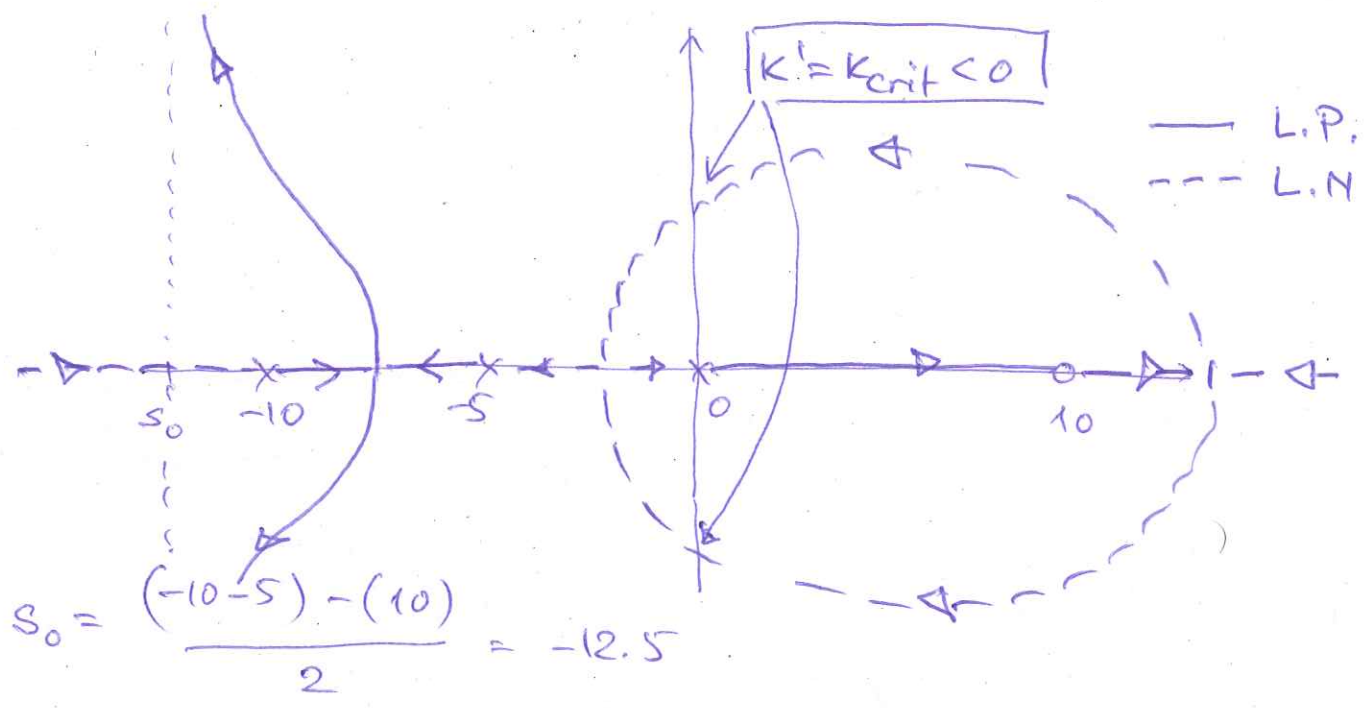 K' = Kcrit < 0
L.P.
L.N
s₀ -10 -5 0 10
s₀ = (-10-5) - (10) / 2 = -12.5